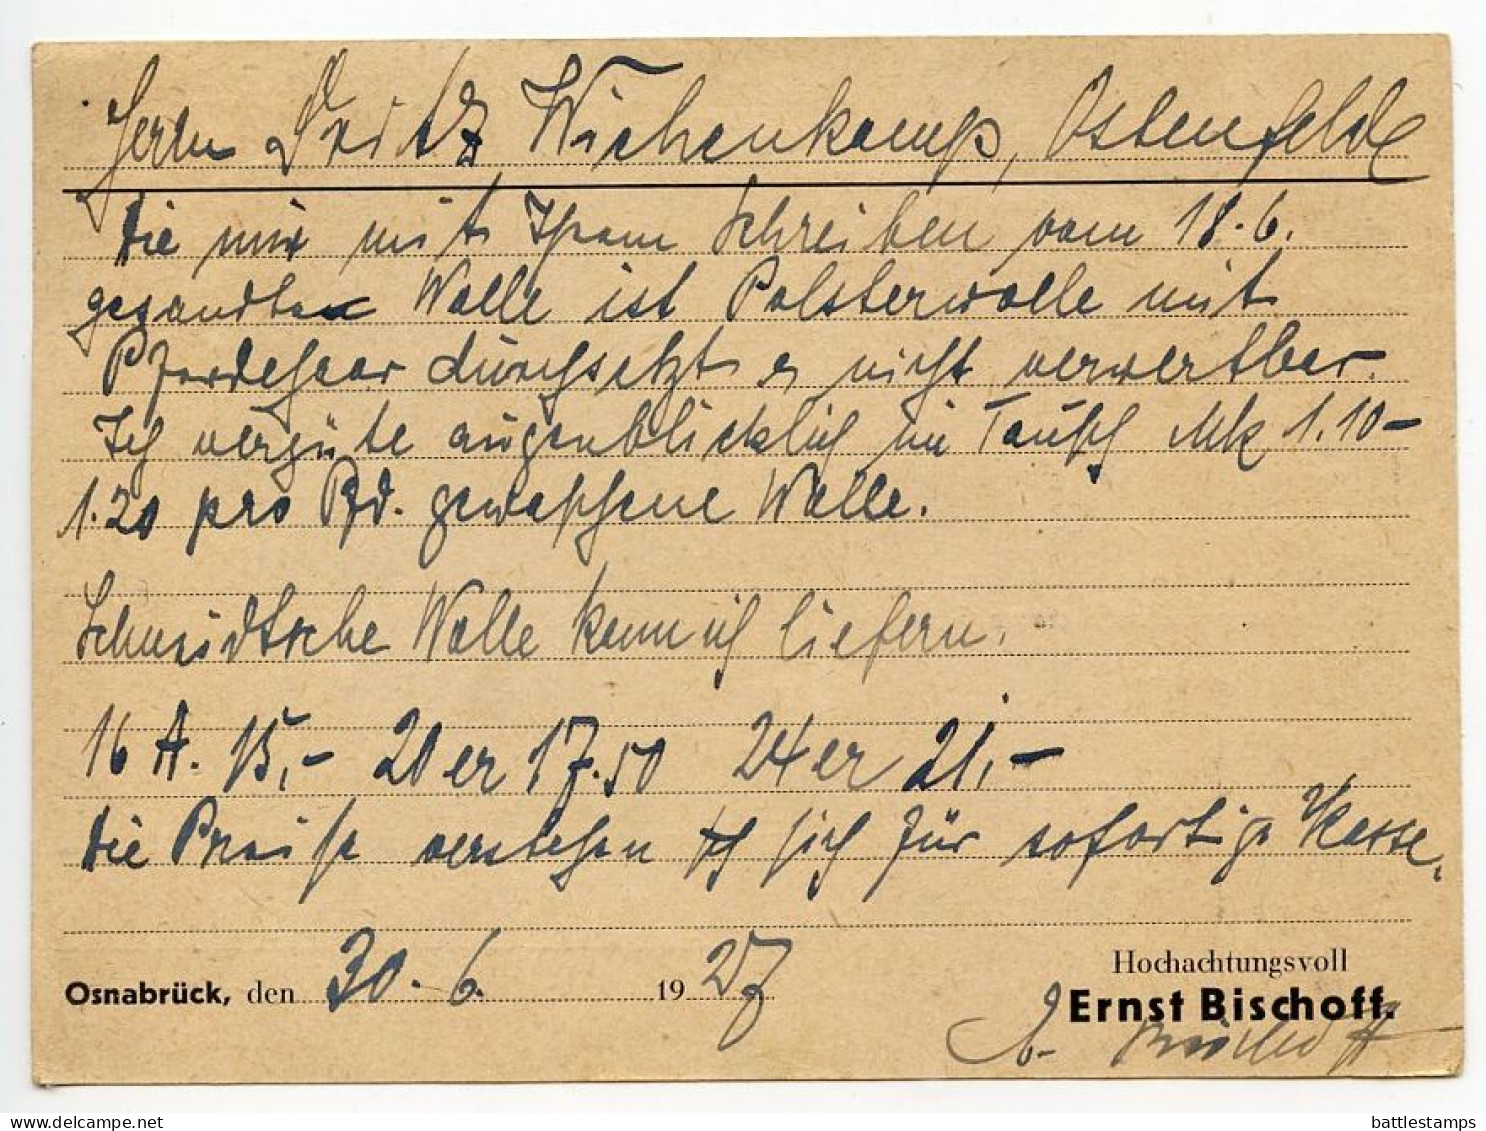 Herrn Fritz Wichenkamp, Ostenfelde
Die mir mit Ihrem Schreiben vom 18.6.
gesandte Wolle ist Polsterwolle mit
Pferdehaar durchsetzt & nicht verwertbar.
Ich vergüte augenblicklich im Tausch Mk 1.10-
1.20 pro Pfd. gewaschene Wolle.
Schmidtsche Wolle kann ich liefern.
16 A. 15,- 20er 17.50 24er 21,-
Die Preise verstehen sich für sofortige Kasse.
Osnabrück, den 30.6. 1927
Hochachtungsvoll
Ernst Bischoff.
E. Bischoff
delcampe.net
battlestamps